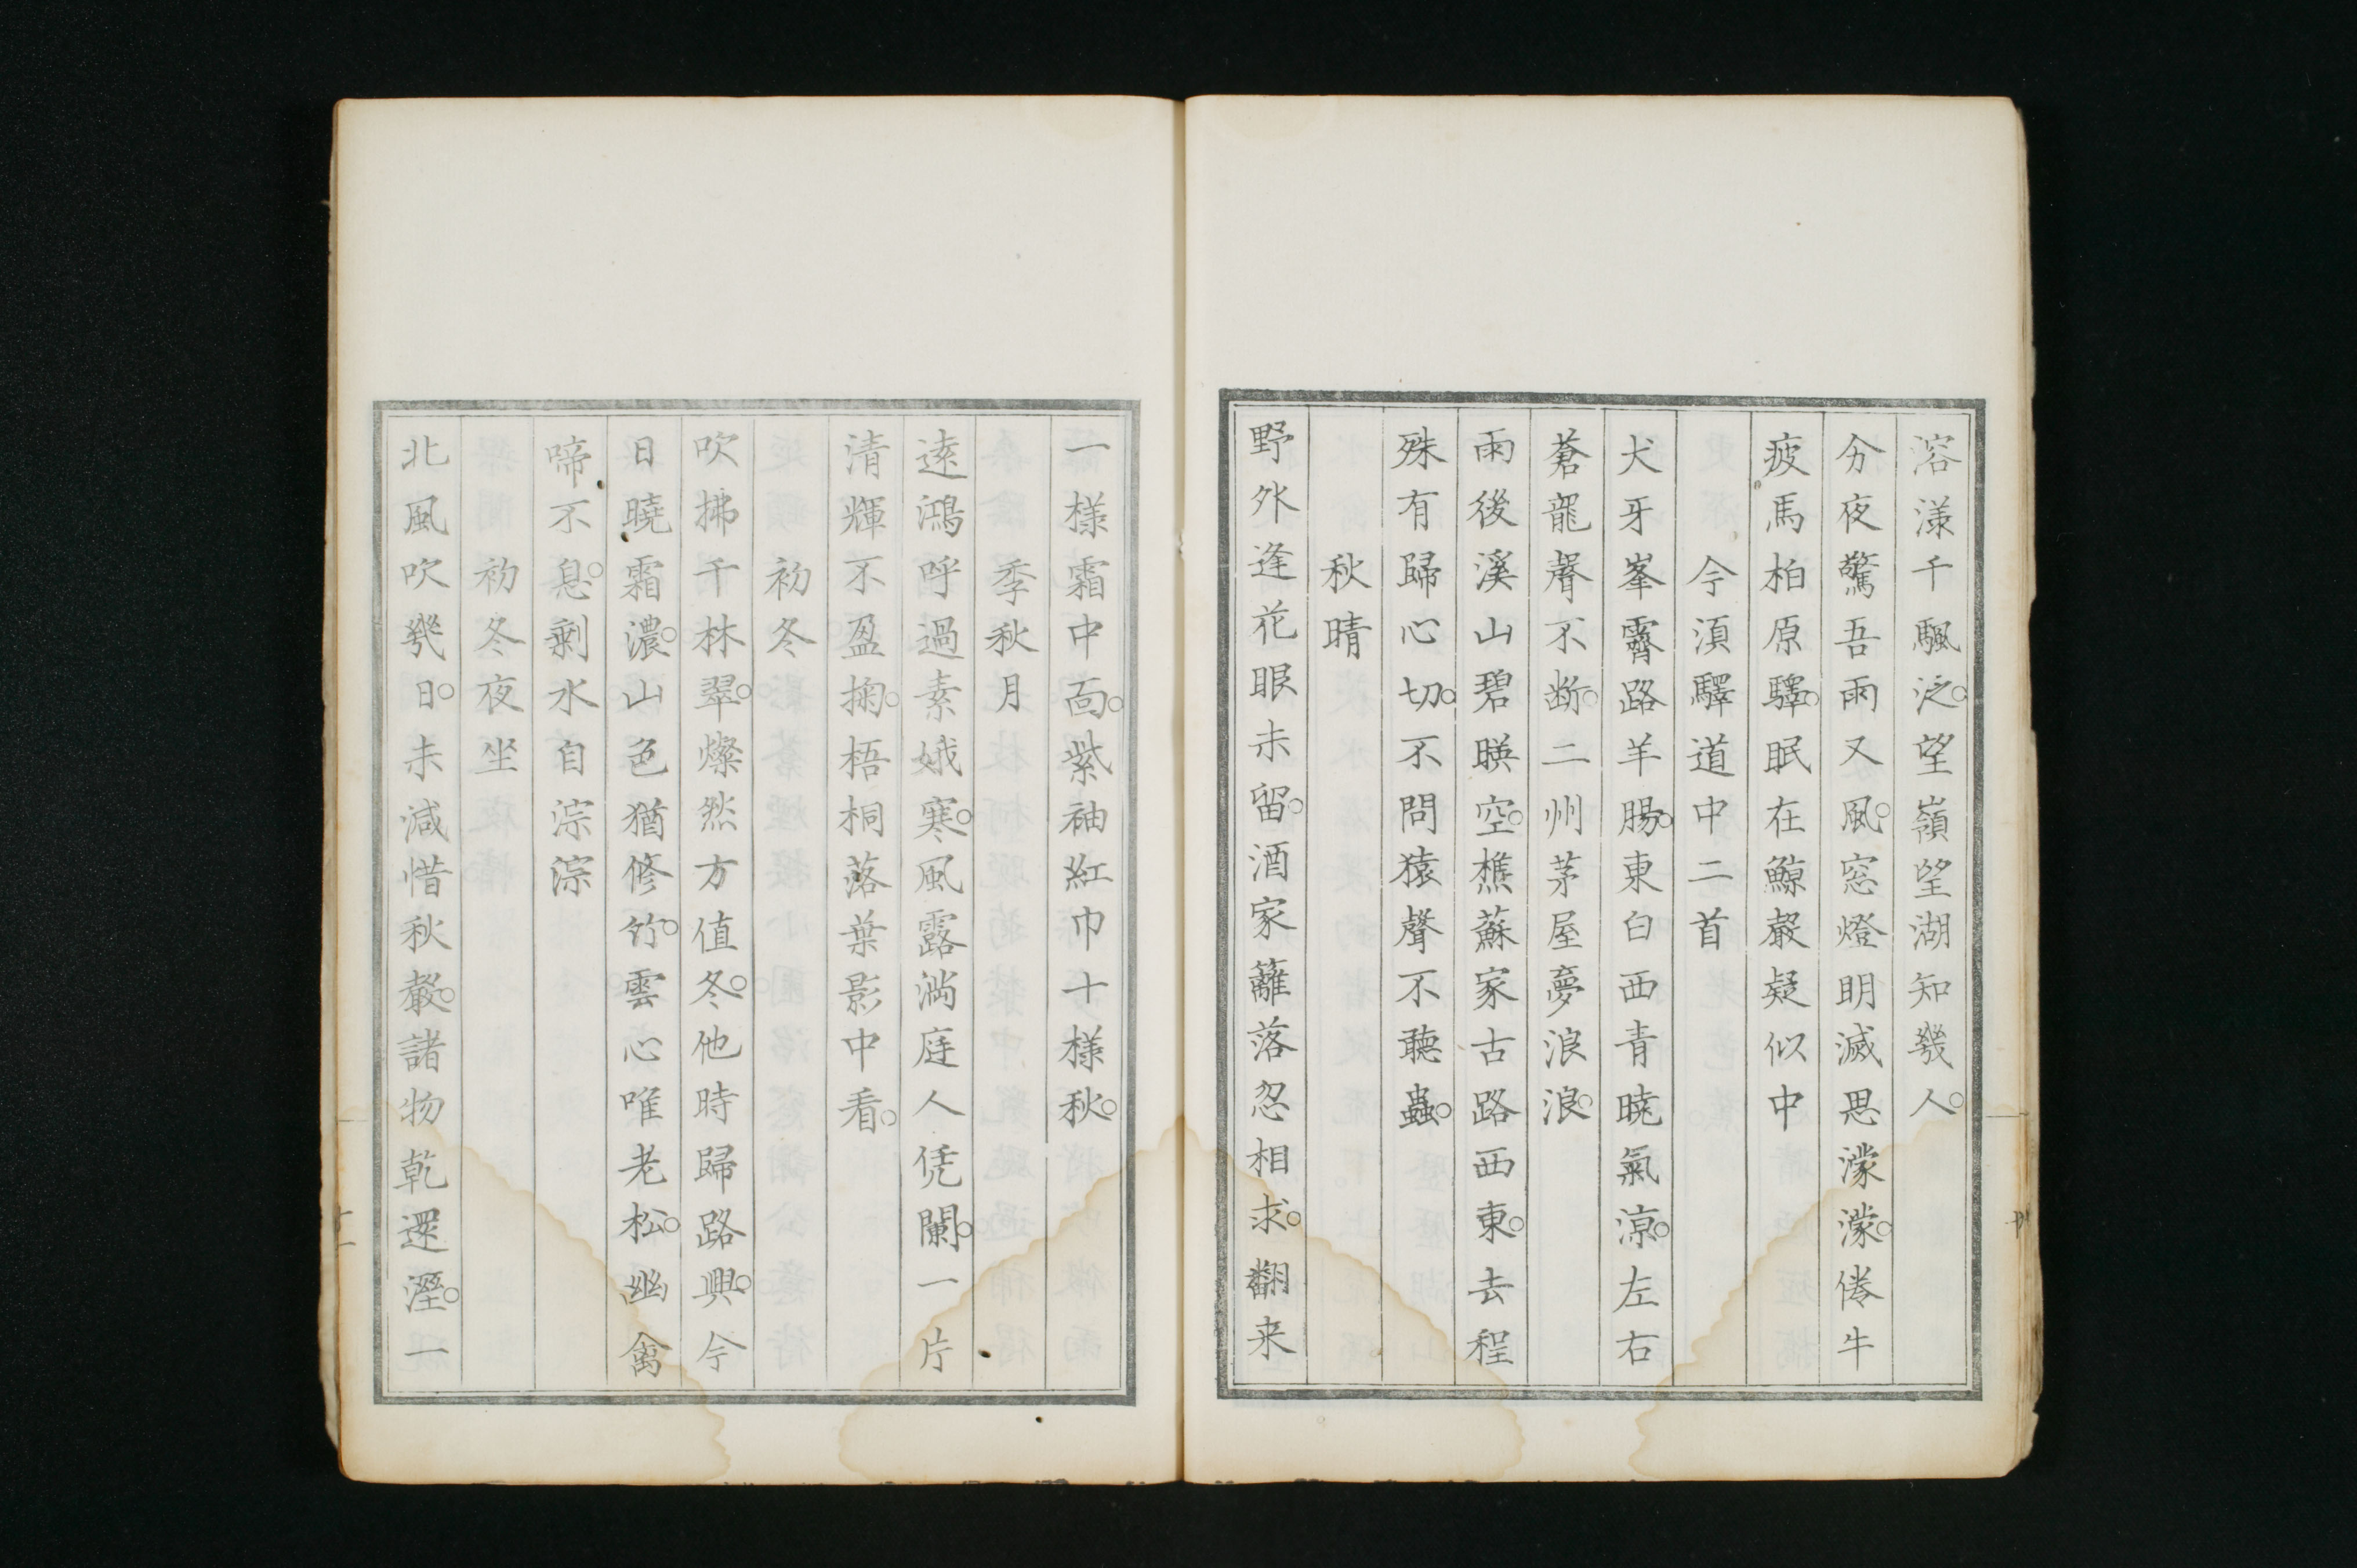 溶漾千颿泛。望嶺望湖知幾人。
分夜驚吾雨又風。窓燈明滅思濛濛。倦牛
疲馬柏原驛。眠在鯨聲疑似中
今湏驛道中二首
犬牙峯霽路羊腸。東白西青曉氣涼。左右
蒼龍聲不断。二州茅屋夢浪浪。
雨後溪山碧暎空。樵蘇家古路西東。去程
殊有歸心切。不問猿聲不聽蟲。
秋晴
野外逢花眼未留。酒家籬落忽相求。翻来
一樣霜中面。紫袖紅巾十樣秋。
季秋月
遠鴻呼過素娥寒。風露満庭人凭闌。一片
清輝不盈掬。梧桐落葉影中看。
初冬
吹拂千林翠。燦然方值冬。他時歸路興。今
日曉霜濃。山色猶修竹。雲心唯老松。幽禽
啼不息。剩水自淙淙
初冬夜坐
北風吹幾日。未減惜秋聲。諸物乾還溼。一